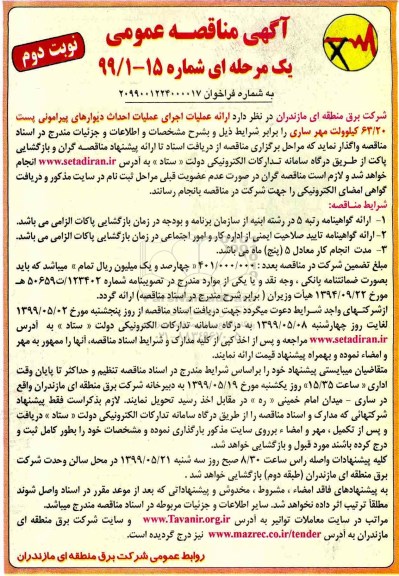 آگهی مناقصه عمومی
نوبت دوم
یک مرحله ای شماره ۱۵-۹۹/۱
به شماره فراخوان ۲۰۹۹۰۰۱۲۲۴۰۰۰۰۱۷
شرکت برق منطقه ای مازندران در نظر دارد ارائه عملیات اجرای عملیات احداث دیوارهای پیرامونی پست
۶۳/۲۰ کیلوولت مهر ساری را برابر شرایط ذیل و بشرح مشخصات و اطلاعات و جزئیات مندرج در اسناد
مناقصه واگذار نماید که مراحل برگزاری مناقصه از دریافت اسناد تا ارائه پیشنهاد مناقصـه گـران و بازگشایی
پاکت از طـریق درگاه سامانه تـدارکات الکترونیکی دولت « ستاد » به آدرس www.setadiran.ir انجام
خواهد شد و لازم است مناقصه گران در صورت عدم عضویت قبلی مراحل ثبت نام در سایت مذکور و دریافت
گواهی امضای الکترونیکی را جهت شرکت در مناقصه بانجام رسانند.
شرایط مناقصه:
۱- ارائه گواهینامه رتبه ۵ در رشته ابنیه از سازمان برنامه و بودجه در زمان بازگشایی پاکات الزامی می باشد.
۲- ارائه گواهینامه تایید صلاحیت ایمنی از اداره کار و امور اجتماعی در زمان بازگشایی پاکات الزامی می باشد.
۳- مدت انجام کار معادل ۵ (پنج) ماه می باشد.
مبلغ تضمین شرکت در مناقصه بعدد ۴۰۱/۰۰۰/۰۰۰ « چهارصد و یک میلیون ریال تمام » میباشد که باید
بصورت ضمانتنامه بانکی ، وجه نقد و یا یکی از موارد مندرج در تصویبنامه شماره ۱۲۳۴۰۲/ت۵۰۶۵۹هـ
مورخ ۱۳۹۴/۰۹/۲۲ هیأت وزیران ( برابر شرح مندرج در اسناد مناقصه) ارائه گردد.
ازشرکتهای واجد شـرایط دعوت میگردد جهت دریافت اسناد مناقصه از روز پنجشنبه مورخ ۱۳۹۹/۰۵/۰۲
لغایت روز چهارشنبه ۱۳۹۹/۰۵/۰۸ به درگاه سامانه تدارکات الکترونیکی دولت « ستاد » به آدرس
www.setadiran.ir مراجعه و پس از اخذ کپی از کلیه مدارک و شرایط اسناد مناقصه، آنها را ممهور به مهر
و امضاء نموده و بهمراه پیشنهاد قیمت ارائه نمایند.
متقاضیان میبایستی پیشنهاد خود را براساس شرایط مندرج در اسناد مناقصه تنظیم و حداکثر تا پایان وقت
اداری « ساعت ۱۵/۳۵» روز یکشنبه مورخ ۱۳۹۹/۰۵/۱۹ به دبیرخانه شرکت برق منطقه ای مازندران واقع
در ساری - میدان امام خمینی « ره » در مقابل اخذ رسید تحویل نمایند. لازم بذکراست فقط پیشنهاد
شرکتهائی که مدارک و اسناد مناقصه را از طریق درگاه سامانه تدارکات الکترونیکی دولت « ستاد » دریافت
و پس از تکمیل ، مهر و امضاء برروی سایت مذکور بارگذاری نموده و مشخصات خود را بطور کامل ثبت و
درج کرده باشند مورد قبول و بازگشایی خواهد شد.
کلیه پیشنهادات واصله راس ساعت ۸/۳۰ صبح روز سه شنبه ۱۳۹۹/۰۵/۲۱ در محل سالن وحدت شرکت
برق منطقه ای مازندران (طبقه دوم) بازگشایی خواهد شد .
به پیشنهادهای فاقد امضاء ، مشروط ، مخدوش و پیشنهاداتی که بعد از موعد مقرر در اسناد واصل شوند
مطلقاً ترتیب اثر داده نخواهد شد. سایر اطلاعات و جزئیات مربوطه در اسناد مناقصه مندرج میباشد.
مراتب در سایت معاملات توانیر به آدرس www.Tavanir.org.ir و سایت شرکت برق منطقه ای
مازندران به آدرس www.mazrec.co.ir/tender نیز درج گردیده است.
روابط عمومی شرکت برق منطقه ای مازندران